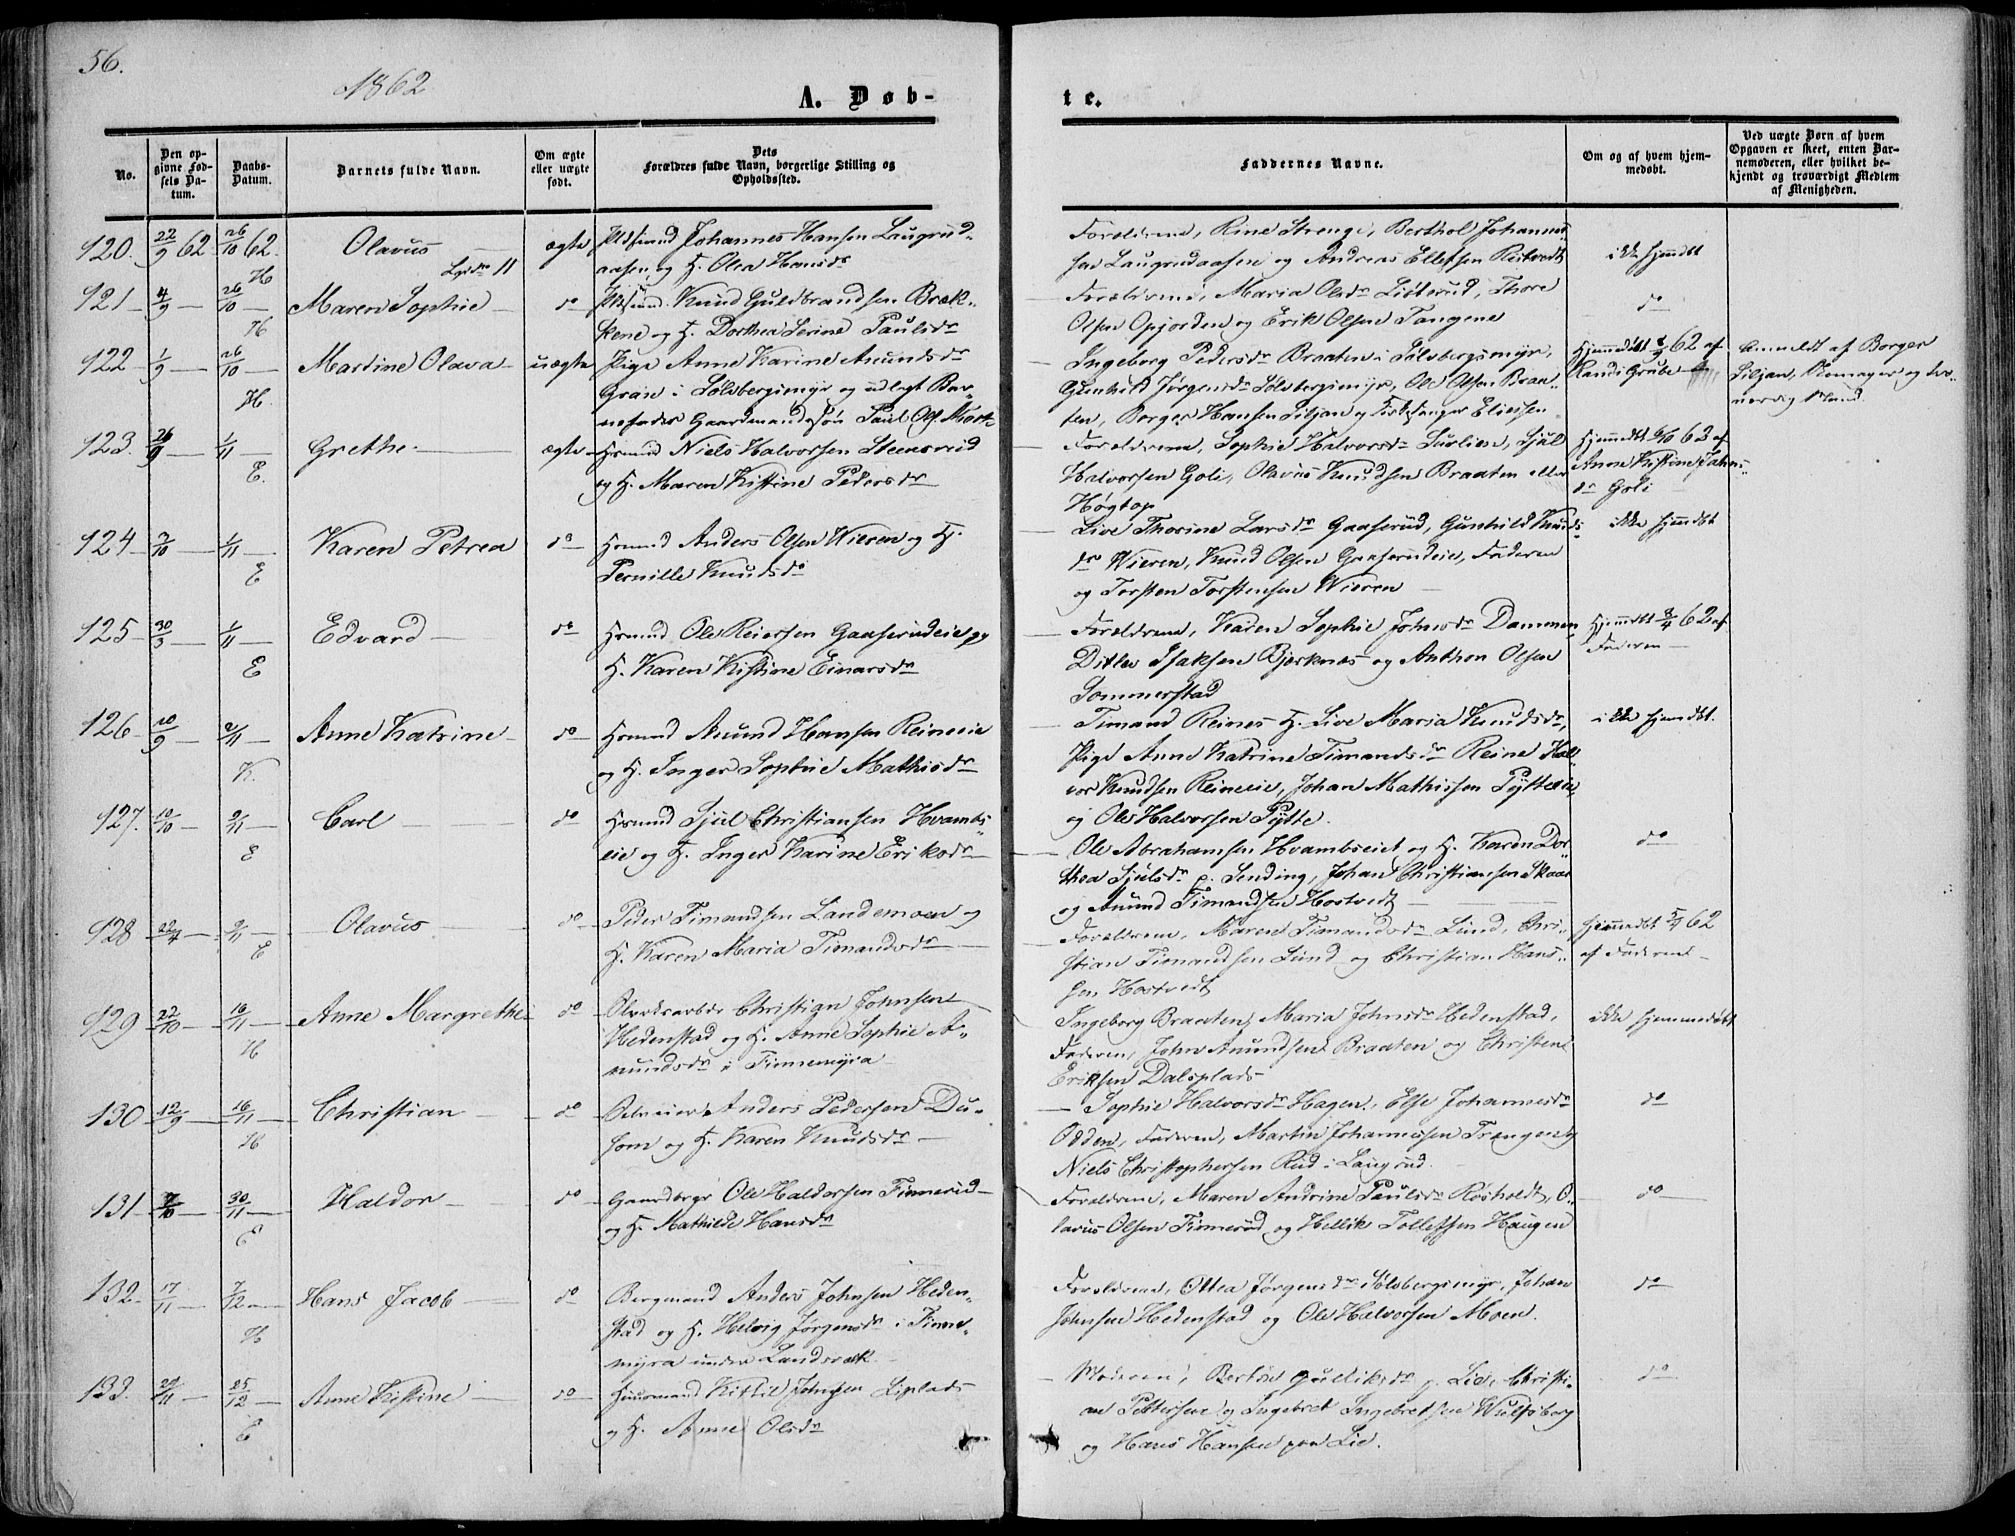 56.
1862
A. Døb-
te.
No.
Den op-
givne Fød-
sels Da-
tum.
Daabs-
Datum.
Barnets fulde Navn.
Om ægte
eller uægte
født.
Dets
Forældres fulde Navn, borgerlige Stilling og
Opholdssted.
Faddernes Navne.
Om og af hvem hjem-
medøbt.
Ved uægte Børn af hvem
Opgaven er skeet, enten Bar-
nemoderen, eller hvilket be-
kjendt og troværdigt Medlem
af Menigheden.
120. 22/9 62 26/10 62. Olavus ægte Johannes Hansen Laugrud-
aasen og H. Olea Hansdr
H
Forældrene, Rine Strenge, Berthol Johannes-
sen Laugrudaasen og Andreas Ellefsen Ristvedt
ikke hjemdbt
121 4/9 26/10 Maren Sophie do Knud Guldbrandsen Bræk-
kene og H. Dorthea Serine Paulsdr
H
Forældrene, Maria Olsdr Listerud, Thore
Olsen Opjorden og Erik Olsen Tangene
do
122 1/9 26/10 Martine Olava uægte Pige Anne Karine Anundsdr
Gran i Sølvbergsmyr og udlagt Bar-
nefader Gaardmandssøn Paul Ols.
H.
Ingeborg Pedersdr Braaten i Sølvbergsmyr,
Gunhild Jørgensdr Sølvbergsmyr, Ole Olsen Braa-
ten, Borger Hansen Siljan og Kirkesanger Eliassen
Hjemmedbt 62 af
Randi Grube
Anmeldt af Borger
Siljan,
123. 26/9 1/11 Grethe ægte Hsmnd Niels Halvorsen Steensrud
og H. Maren Kistine Pedersdr
E.
Forældrene, Sophie Halvorsdr Surlien, Sjul
Halvorsen Goli, Olavus Knudsen Braaten eller
Høgtop
Hjemmdbt 62 af
Anne Kistine Johns-
dr Goli
124 3/10 1/11 Karen Petrea do Hsmnd Anders Olsen Wieren og H.
Pernille Knudsdr
E
Live Thorine Larsdr Gaaserud, Gunhild Knuds-
dr Wieren, Knud Olsen Gaaserudeie, Faderen
og Torsten Torstensen Wieren
ikke hjemdbt
125 30/3 1/11 Edvard do Hsmnd Ole Reiersen Gaaserudeie og
H. Karen Kistine Einarsdr
E
Forældrene, Karen Sophie Johnsdr Dammen
Ditlev Isaksen Bjerknæs og Anthon Olsen
Sommerstad
Hjemmdbt 8/4 62 af
Faderen
126 20/9 2/11 Anne Katrine do Hsmnd Anund Hansen Reineeie
og H. Inger Sophie Mathisdr
K.
Timand Reines H. Live Maria Knudsdr,
Pige Anne Katrine Timandsdr Reine Hal-
vor Knudsen Reineeie, Johan Mathissen Pytteeie,
og Ole Halvorsen Pytte.
ikke hjemdbt.
127. 10/10 9/11 Carl do Hsmnd Sjul Christiansen Hvambs-
eie og H. Inger Karine Eriksdr
E
Ole Abrahamsen Hvambseiet og H. Karen Dor-
thea Sjulsdr p. Sending, Johan Christiansen Skaar
og Anund Timandsen Hostvedt
do
128 22/4 9/11 Olavus do Peder Timandsen Landemoen og
H. Karen Maria Timandsdr
E
Forældrene, Maren Timandsdr Lund, Chri-
stian Timandsen Lund og Christian Hans-
sen Hostvedt
Hjemmedbt 5/7 62
af Faderen
129 22/10 16/11 Anne Margrethe do Christian Johnsen
Hedenstad og H. Anne Sophie A-
nundsdr i Finnemyra
H
Ingeborg Braaten, Maria Johnsdr Hedenstad,
Faderen, John Anundsen Braaten og Christen
Eriksen Dalsplads
ikke hjemmedøbt
130 12/9 16/11 Christian do Selveier Anders Pedersen Du-
som og H. Karen Knudsdr
H
Sophie Halvorsdr Hagen, Else Johannesdr
Odden, Faderen, Martin Johannesen Trengen og
Niels Christophersen Rud i Laugrud.
do
131 30/11 Haldor do Gaardbrgr Ole Haldorsen Finnerud
og H. Mathilde Hansdr
E
Forældrene, Maren Andrine Paulsdr Rosholdt, O-
lavus Olsen Finnerud og Hellik Tollefsen Haugen
do
132 17/11 7/12 Hans Jacob do Bergmand Anders Johnsen Heden-
stad og H. Helvig Jørgensdr i Finne-
myra under Landsværk
H
Forældrene, Ottea Jørgensdr Sølvbergsmyr, Johan
Johnsen Hedenstad og Ole Halvorsen Moen.
do
133. 11 25/12 Anne Kistine do Huusmand Kittil Johnsen Liplads
og H. Anne Olsdr
E
Moderen, Gulliksdr p. Lie, Christi-
an Pettersen og Ingebret Ingebretsen Wulfsborg
og Hans Hansen paa Lie.
do